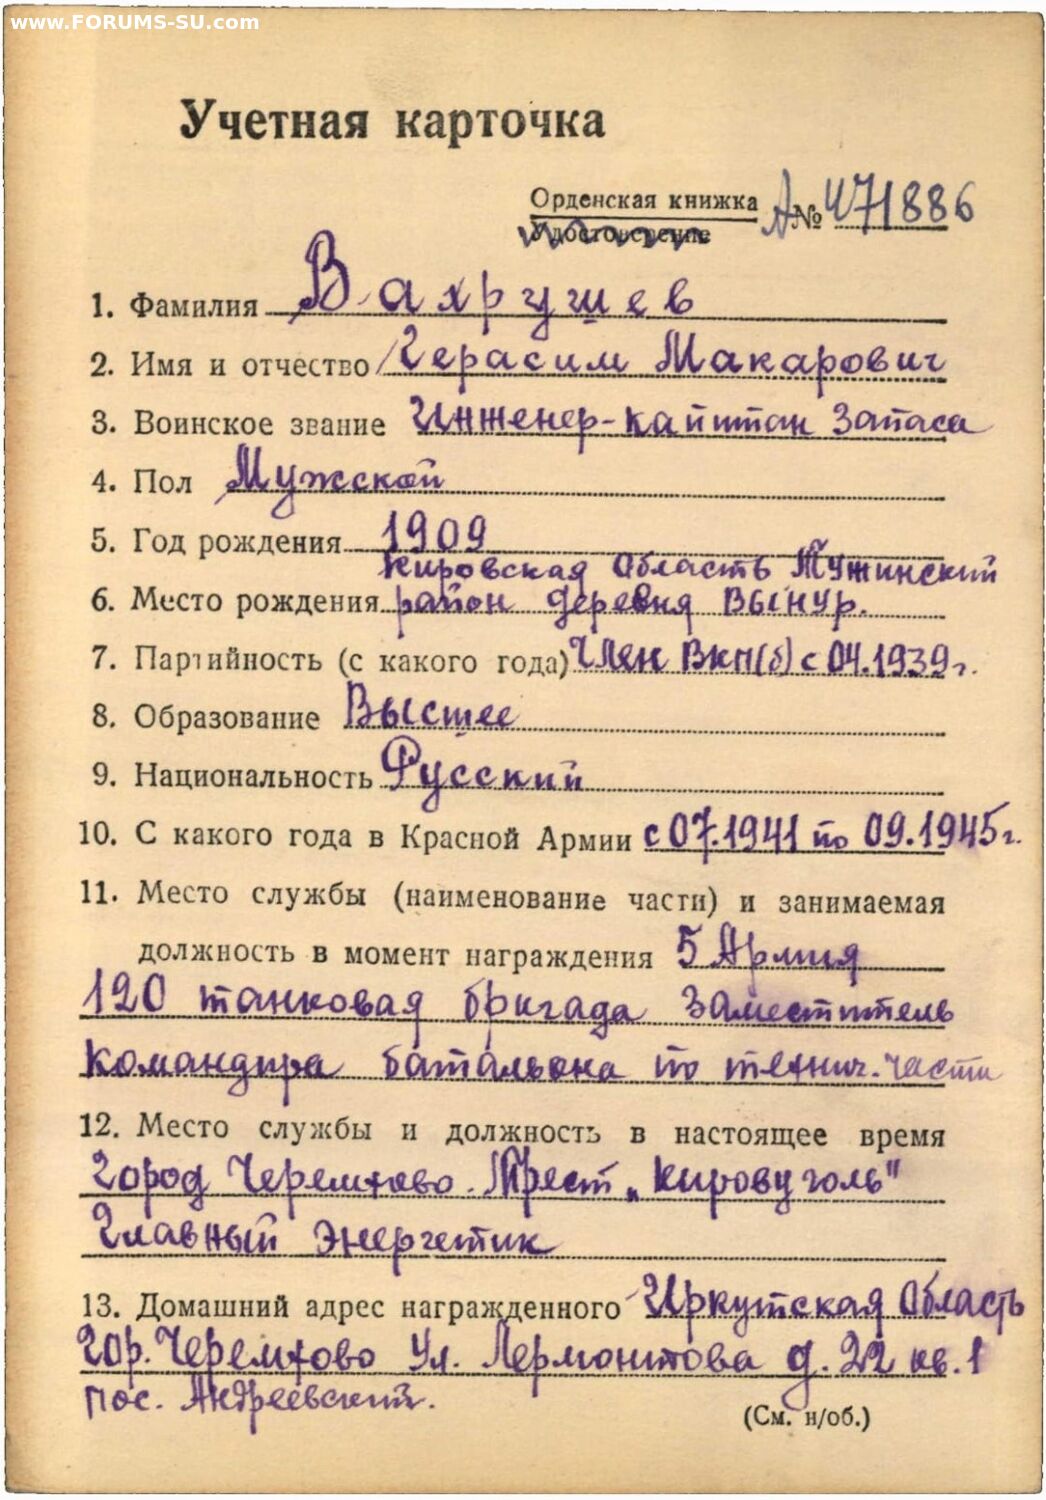 www.FORUMS-SU.com
Учетная карточка
Орденская книжка А№ 471886
Удостоверение
1. Фамилия Вахрушев
2. Имя и отчество Герасим Макарович
3. Воинское звание Инженер-капитан запаса
4. Пол Мужской
5. Год рождения 1909
Кировская Область Тужинский
6. Место рождения район деревня Вынур.
7. Партийность (с какого года) Член ВКП(б) с 04.1939г.
8. Образование Высшее
9. Национальность Русский
10. С какого года в Красной Армии с 07.1941 по 09.1945г.
11. Место службы (наименование части) и занимаемая
должность в момент награждения 5 Армия
120 танковая бригада Заместитель
командира батальона по технич. части
12. Место службы и должность в настоящее время
Город Черемхово. Трест „Кировуголь"
Главный энергетик
13. Домашний адрес награжденного Иркутская Область
гор. Черемхово Ул. Лермонтова д. 22 кв. 1
пос. Андреевский.
(См. н/об.)